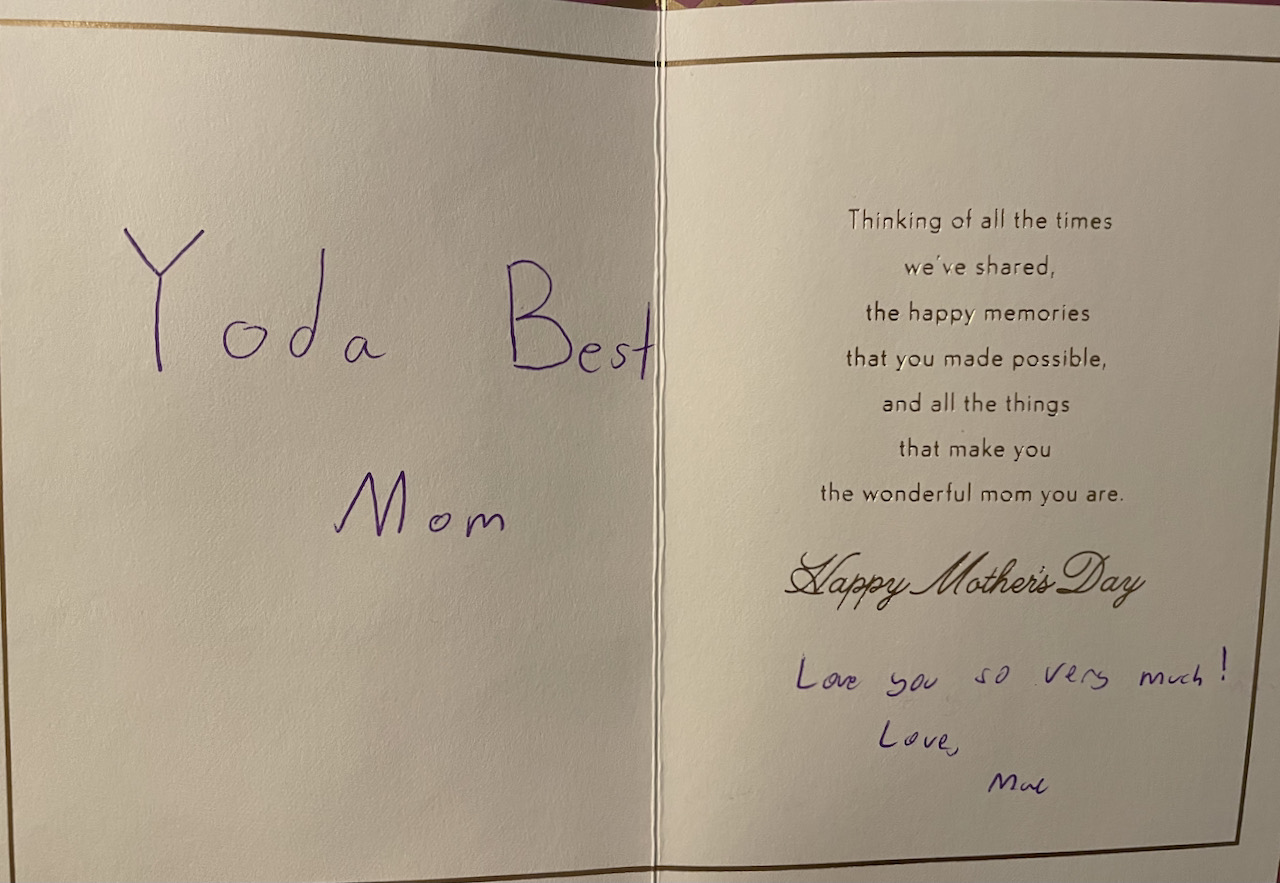 Yoda Best
Mom
Thinking of all the times
we've shared,
the happy memories
that you made possible,
and all the things
that make you
the wonderful mom you are.
Happy Mother's Day
Love you so very much!
Love,